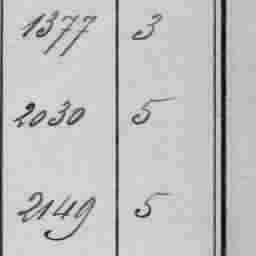 1377 3
2030 5
2149 5